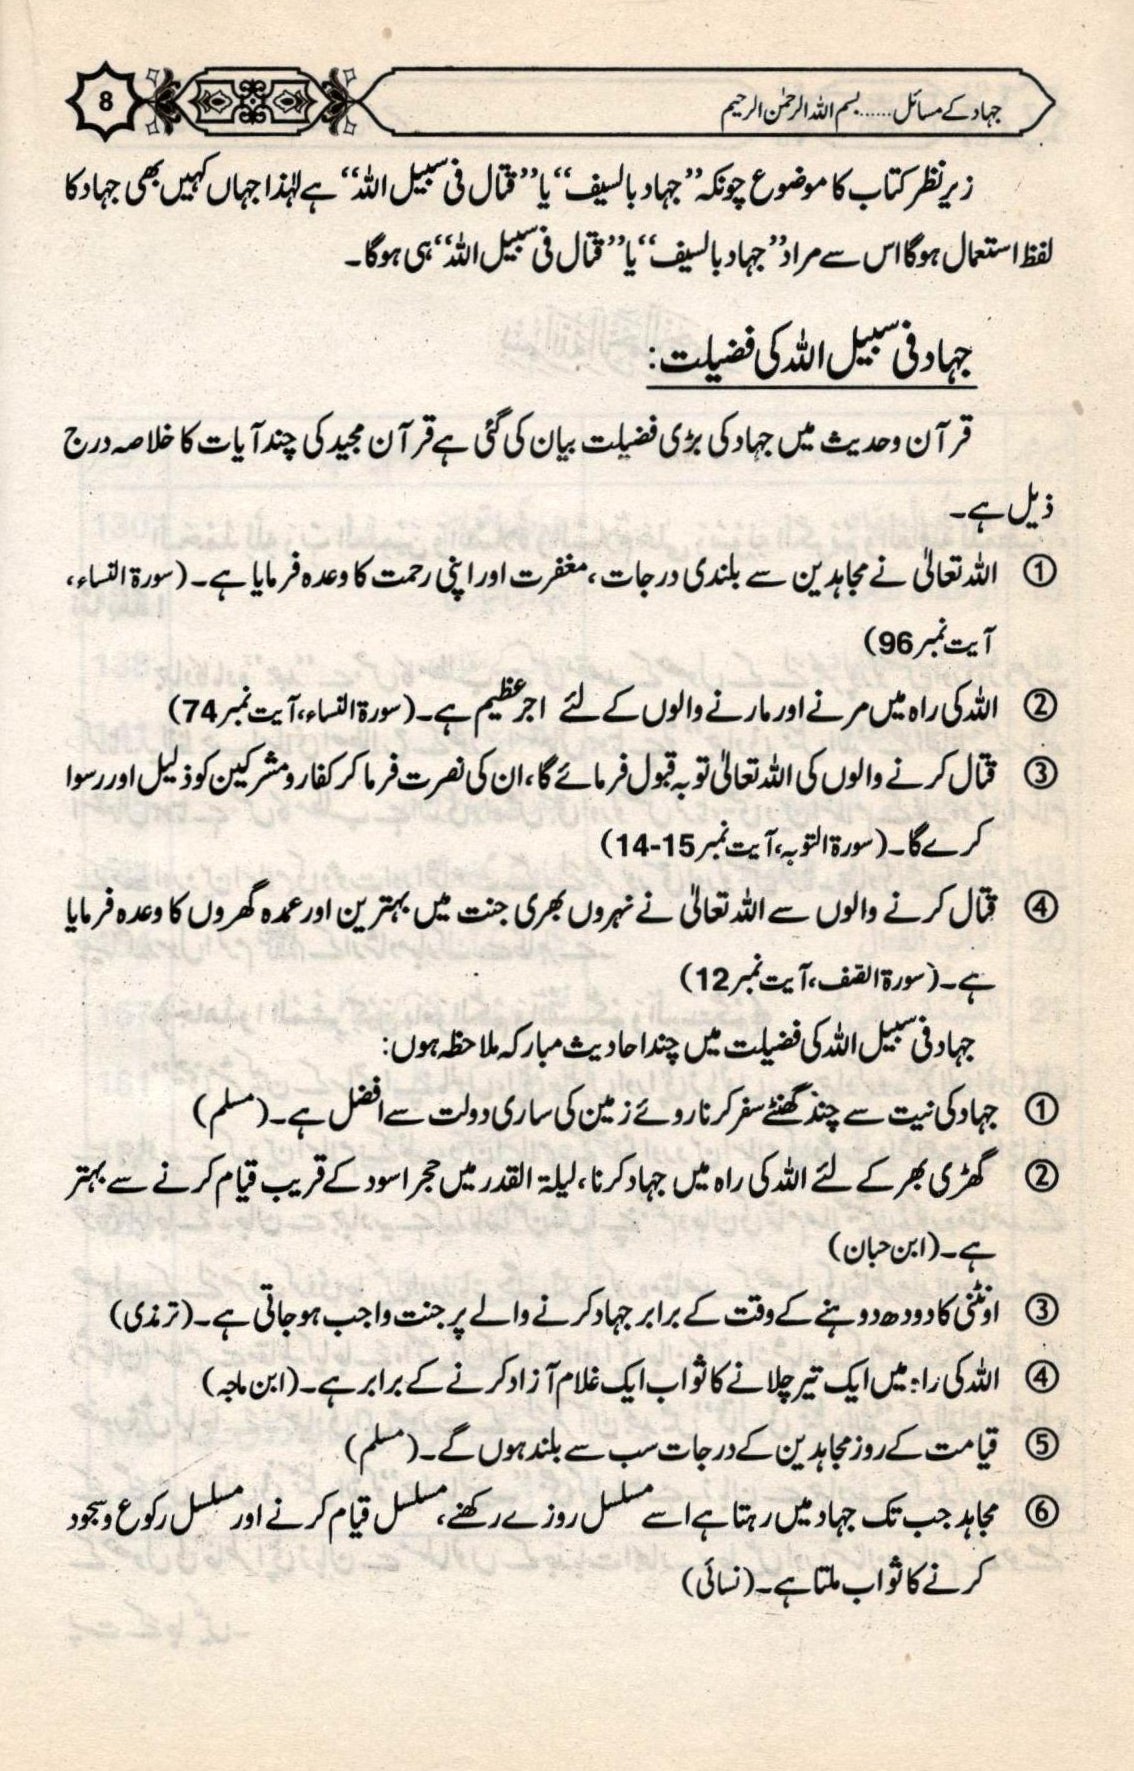 جہاد کے مسائل......بسم اللہ الرحمٰن الرحیم
8
زیر نظر کتاب کا موضوع چونکہ ”جہاد بالسیف“ یا ”قتال فی سبیل اللہ“ ہے لہٰذا جہاں کہیں بھی جہاد کا
لفظ استعمال ہوگا اس سے مراد ”جہاد بالسیف“ یا ”قتال فی سبیل اللہ“ ہی ہوگا۔
جہاد فی سبیل اللہ کی فضیلت:
قرآن وحدیث میں جہاد کی بڑی فضیلت بیان کی گئی ہے قرآن مجید کی چند آیات کا خلاصہ درج
ذیل ہے۔
① اللہ تعالیٰ نے مجاہدین سے بلندی درجات، مغفرت اور اپنی رحمت کا وعدہ فرمایا ہے۔ (سورۃ النساء،
آیت نمبر 96)
② اللہ کی راہ میں مرنے اور مارنے والوں کے لئے اجر عظیم ہے۔ (سورۃ النساء، آیت نمبر 74)
③ قتال کرنے والوں کی اللہ تعالیٰ توبہ قبول فرمائے گا، ان کی نصرت فرما کر کفار و مشرکین کو ذلیل اور رسوا
کرے گا۔ (سورۃ التوبہ، آیت نمبر 15-14)
④ قتال کرنے والوں سے اللہ تعالیٰ نے نہروں بھری جنت میں بہترین اور عمدہ گھروں کا وعدہ فرمایا
ہے۔ (سورۃ الصّف، آیت نمبر 12)
جہاد فی سبیل اللہ کی فضیلت میں چند احادیث مبارکہ ملاحظہ ہوں:
① جہاد کی نیت سے چند گھنٹے سفر کرنا روئے زمین کی ساری دولت سے افضل ہے۔ (مسلم)
② گھڑی بھر کے لئے اللہ کی راہ میں جہاد کرنا، لیلۃ القدر میں حجر اسود کے قریب قیام کرنے سے بہتر
ہے۔ (ابن حبان)
③ اونٹنی کا دودھ دوہنے کے وقت کے برابر جہاد کرنے والے پر جنت واجب ہو جاتی ہے۔ (ترمذی)
④ اللہ کی راہ میں ایک تیر چلانے کا ثواب ایک غلام آزاد کرنے کے برابر ہے۔ (ابن ماجہ)
⑤ قیامت کے روز مجاہدین کے درجات سب سے بلند ہوں گے۔ (مسلم)
⑥ مجاہد جب تک جہاد میں رہتا ہے اسے مسلسل روزے رکھنے، مسلسل قیام کرنے اور مسلسل رکوع و سجود
کرنے کا ثواب ملتا ہے۔ (نسائی)